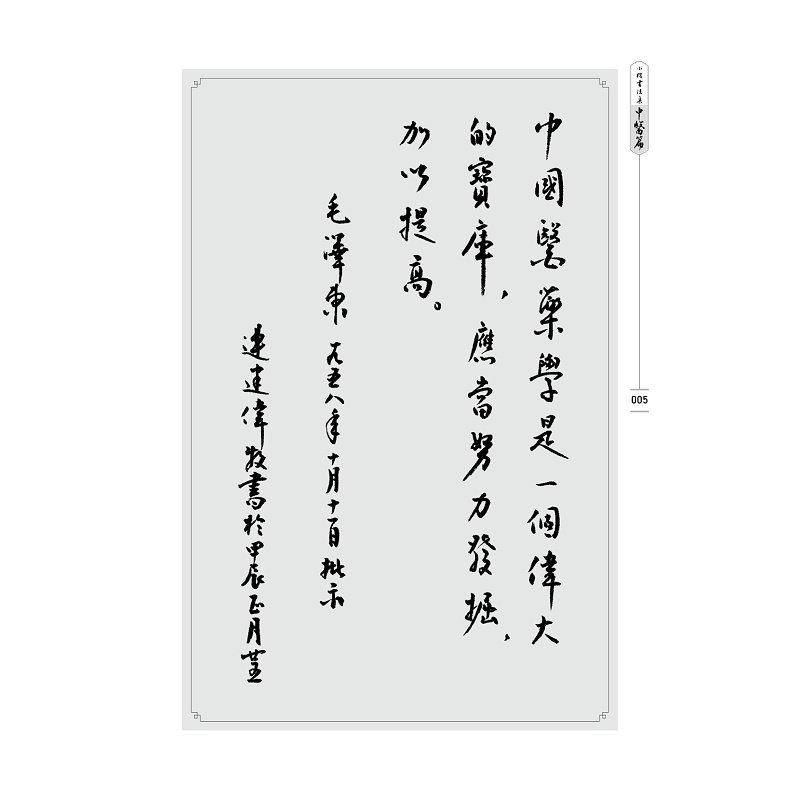 中國醫藥學是一個偉大
的寶庫，應當努力發掘，
加以提高。
毛澤東 一九五八年十月十一日批示
連建偉敬書於甲辰正月廿五
小楷書法集 中醫篇
005